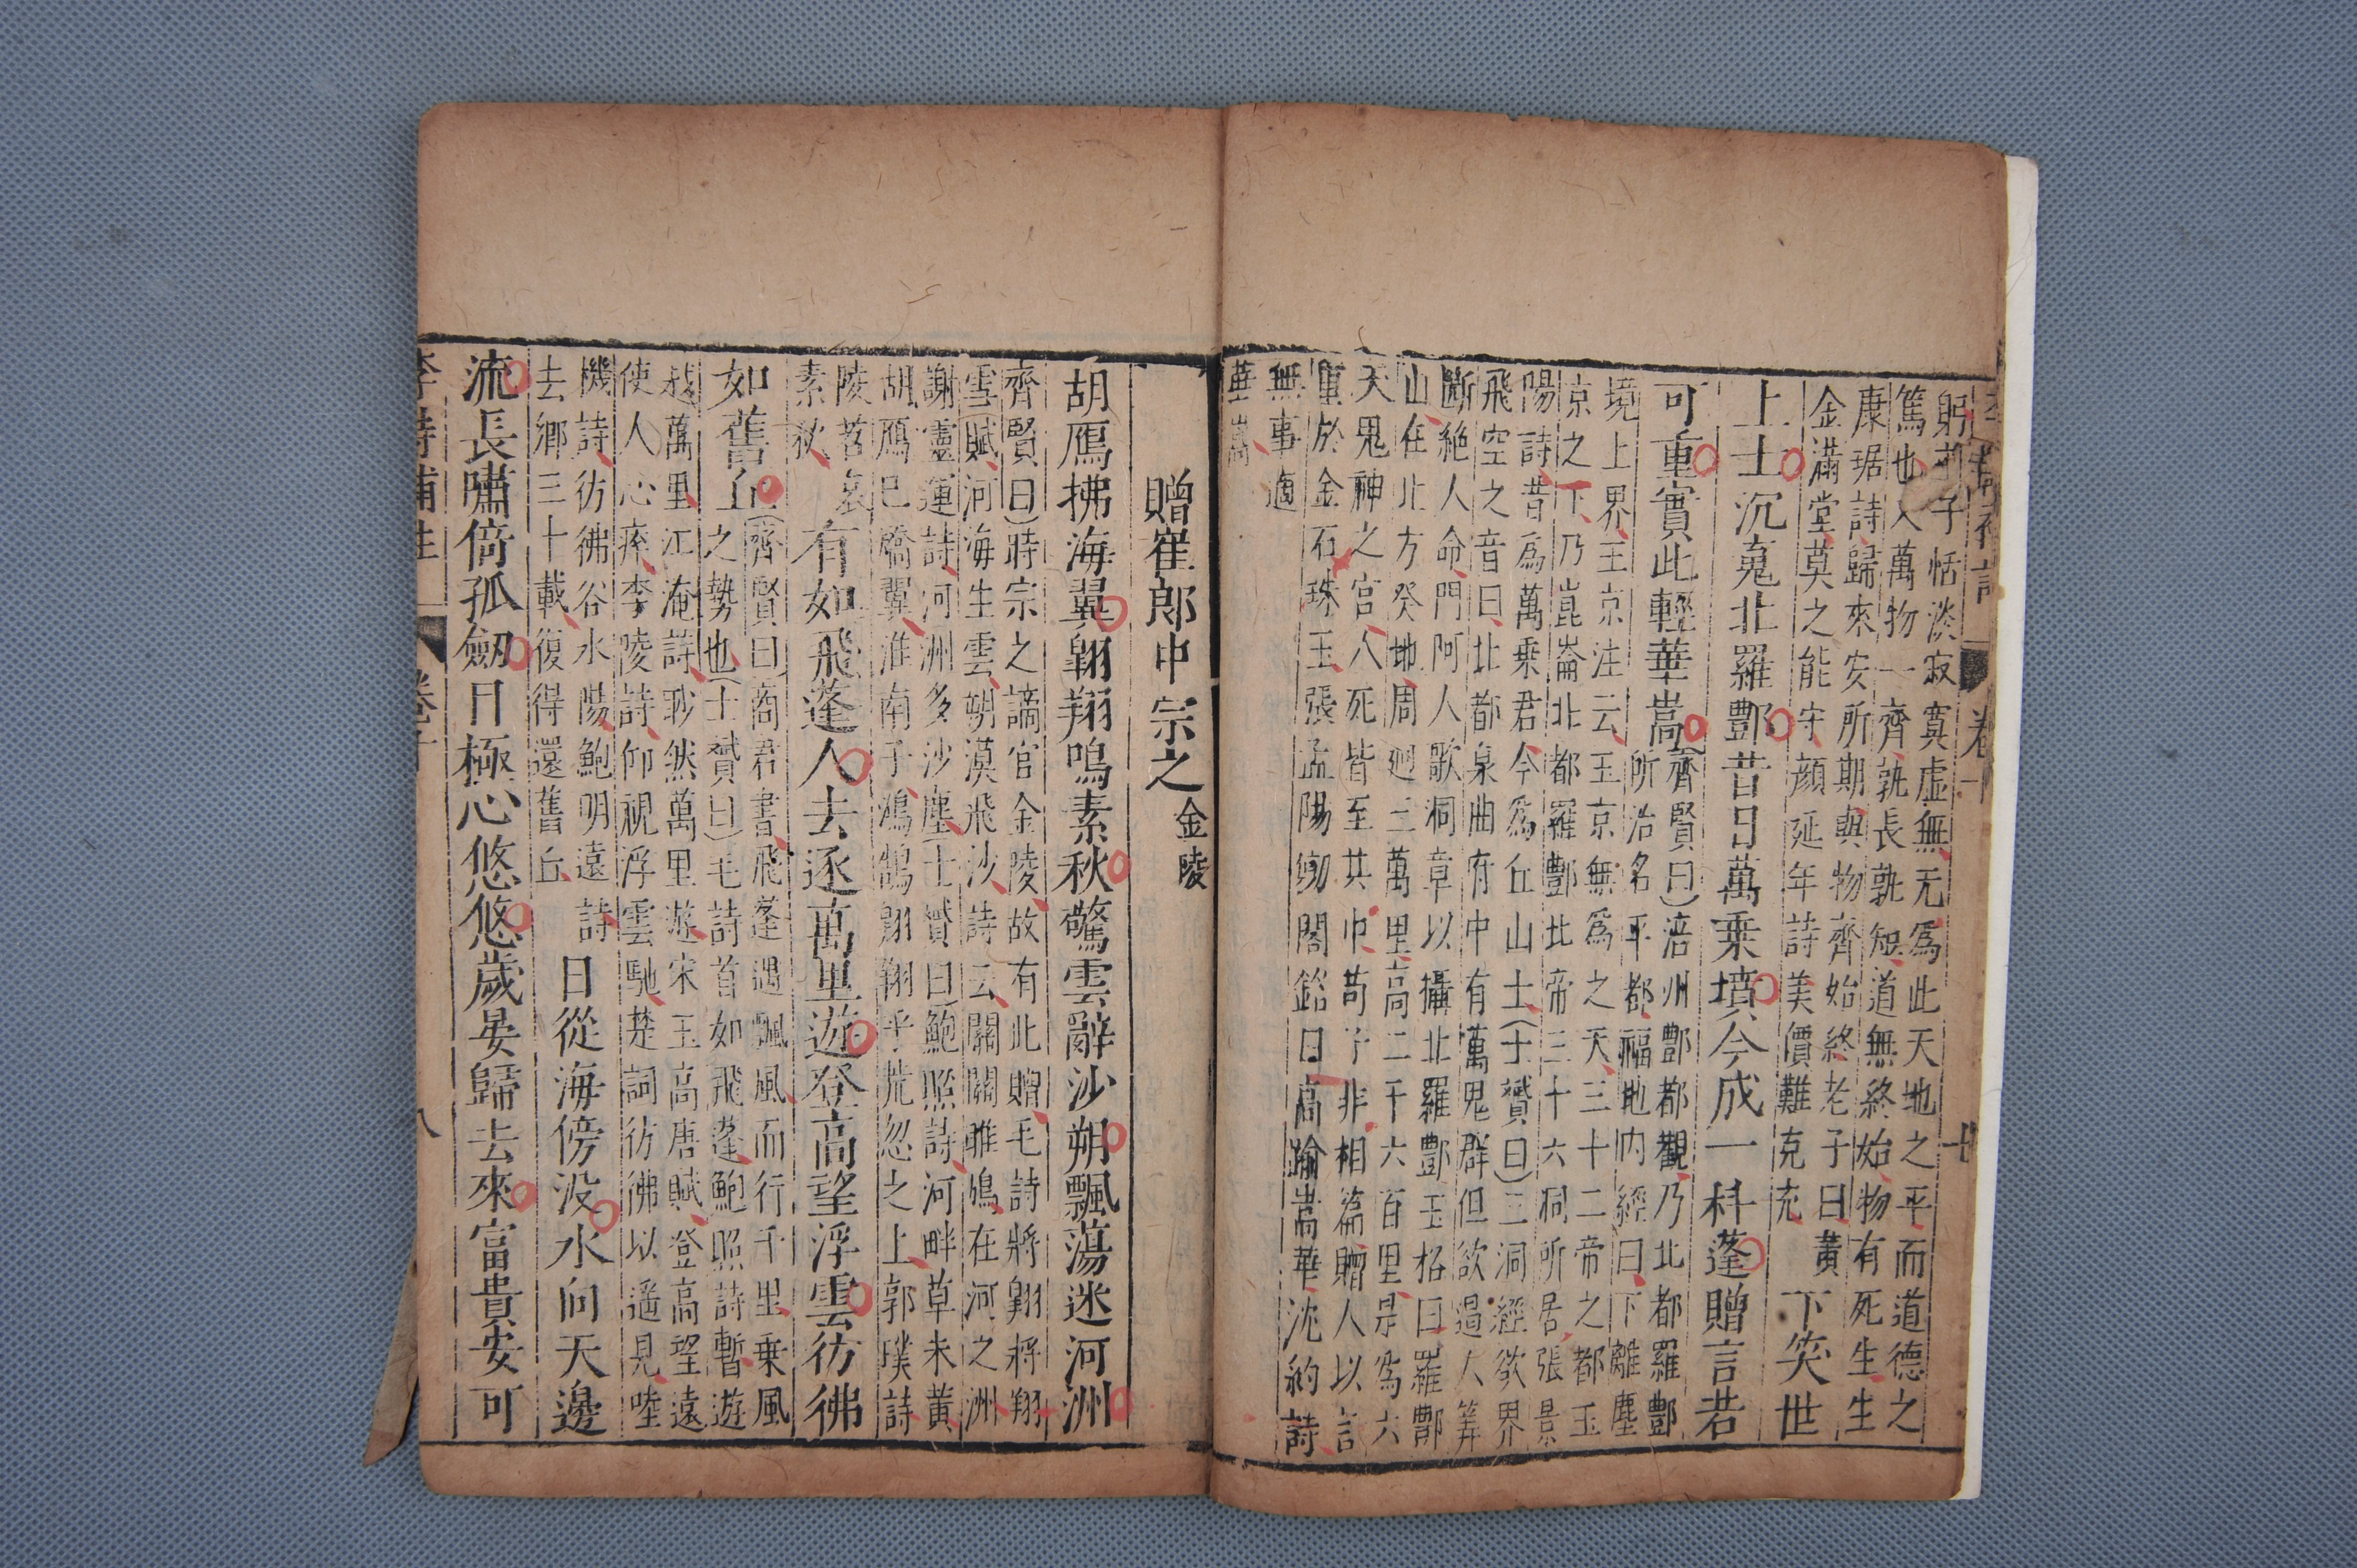 李詩補註 卷十 十
躬莊子恬淡寂寞虛無无爲此天地之平而道德之
篤也又萬物一齊孰長孰短道無終始物有死生生
康琚詩歸來安所期與物齊始終老子曰黃
金滿堂莫之能守顏延年詩美價難克充
下笑世
上士沉䰟北羅酆昔日萬乘墳今成一科蓬贈言若
可重實此輕華嵩
(齊賢曰)涪州酆都觀乃北都羅酆
所治名平都福地内經曰下離塵
境上界玉京注云玉京無爲之天三十二帝之都玉
京之下乃崑崙北都羅酆北帝三十六洞所居張景
陽詩昔爲萬乘君今爲丘山土(士贇曰)三洞經欲界
飛空之音曰北都泉曲府中有萬鬼群但欲遏人筭
斷絕人命門阿人歌洞章以攝北羅酆玉格曰羅酆
山在北方癸地周迴三萬里高二千六百里是爲六
天鬼神之宮人死皆至其中荀子非相篇贈人以言
重於金石珠玉張孟陽劒閣銘曰高踰嵩華沈約詩
無事適
華嵩
贈崔郎中宗之金陵
胡鴈拂海翼翱翔鳴素秋驚雲辭沙朔飄蕩迷河洲
齊賢曰)時宗之謫官金陵故有此贈毛詩將翱將翔
雪賦河海生雲朔漠飛沙詩云關關雎鳩在河之洲
謝靈運詩河洲多沙塵(士贇曰)鮑照詩河畔草未黃
胡鴈已矯翼淮南子鴻鵠翱翔乎荒忽之上郭璞詩
陵苕哀
素秋
有如飛蓬人去逐萬里遊登高望浮雲彷彿
如舊丘
(齊賢曰)商君書飛蓬遇飄風而行千里乗風
之勢也(士贇曰)毛詩首如飛蓬鮑照詩暫遊
越萬里江淹詩眇然萬里遊宋玉高唐賦登高望遠
使人心瘁李陵詩仰視浮雲馳楚詞彷彿以遥見陸
機詩彷彿谷水陽鮑明遠詩
去鄉三十載復得還舊丘
日從海傍没水向天邊
流長嘯倚孤劒目極心悠悠歲晏歸去來富貴安可
李詩補註 卷十 八